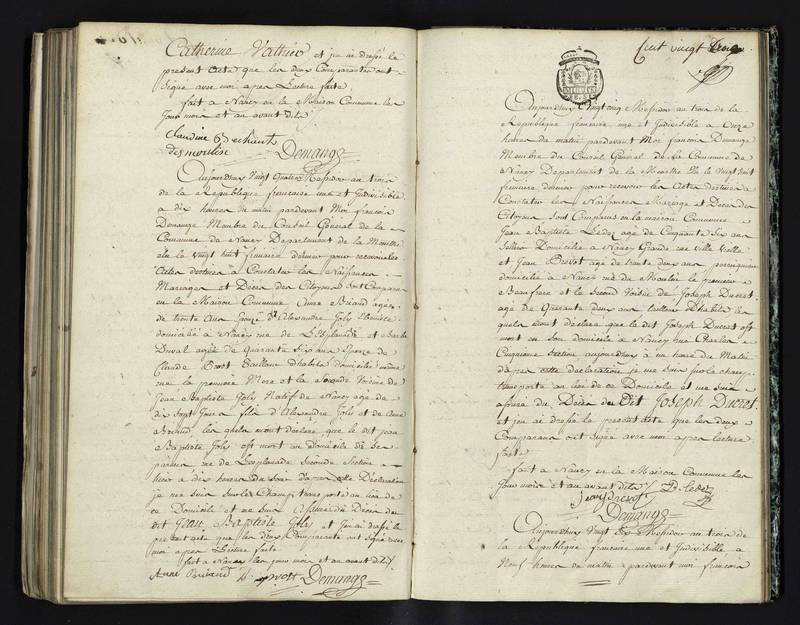 Catherine Vathier et j'ai dressé le
present acte que les deux Comparantes ont
Signé avec moi apres Lecture faite
fait a Nancy en la Maison Commune les
Jour mois et an avant dits
Claudine Bechant
desmoulin Demange
Aujourdhuy Vingt quatre Messidor an trois
de la Republique francaise une et Indivisible
a dix heures du matin pardevant Moi francois
Demange Membre du Conseil General de la
Commune de Nancy Departement de la Meurthe
elu le vingt huit frimaire dernier pour recevoir les
Actes destinés a Constater les Naissances
Mariages et Décès des Citoyens sont Comparus
en la Maison Commune Anne Briand agée
de trente ans Epouse d'Alexandre Joly
domiciliée à Nancy rue de L'Esplanade et Barbe
Duval agée de quarante six ans Epouse de
Claude tailleur d'habits domiciliée même
rue la premiere Mere et la Seconde Voisine de
Jean Baptiste Joly Natif de Nancy agé de
dix sept Jours fils d'Alexandre Joly et de Anne
Briand les quels mont déclaré que le dit Jean
Baptiste Joly est mort au Domicile de ses
pere rue de Lesplanade Seconde Section
hier à dix heures du soir Dapres cette Déclaration
je me suis sur les Champ transporté au lieu de
ce Domicile et me suis assuré du Décès du
dit Jean Baptiste Joly et j'ai dressé le
present acte que les deux Comparants ont Signé avec
moi apres Lecture faite
fait a Nancy les jour mois et an avant dits
Anne Briand Demange
Cent vingt
Aujourdhuy Vingt cinq Messidor an trois de la
Republique francaise une et Indivisible à Onze
heures du matin pardevant Moi francois Demange
Membre du Conseil General de la Commune de
Nancy Departement de la Meurthe Elu le vingt huit
frimaire dernier pour recevoir les Actes destinés a
Constater les Naissances Mariages et Décès des
Citoyens Sont Comparus en la maison Commune
Jean Baptiste Leder agé de Cinquante Six ans
Sellier Domicilié a Nancy Grande rue ville vielle
et Jean Drevot agé de trente deux ans perruquier
domicilié a Nancy rue du le premier
Beaufrere et le Second Voisin de Joseph Ducret
agé de Quarante deux ans tailleur D'habits les
quels mont declaré que le dit Joseph Ducret est
mort en son domicile a Nancy rue Charles
Cinquieme Section aujourdhuy à une heure du Matin
dapres cette declaration je me suis sur le champ
transporté au lieu de ce Domicile et me suis
assuré du Décès du Dit Joseph Ducret.
et j'ai dressé le present acte que les deux
Comparans ont signé avec moi apres lecture
faite
fait a Nancy en la Maison Commune les
Jour mois et an avant dits B. Leder
Jean Drevot
Demange
Aujourdhuy Vingt Six Messidor an trois de
la Republique francaise une et Indivisible a
Neuf heures du matin pardevant moi francois